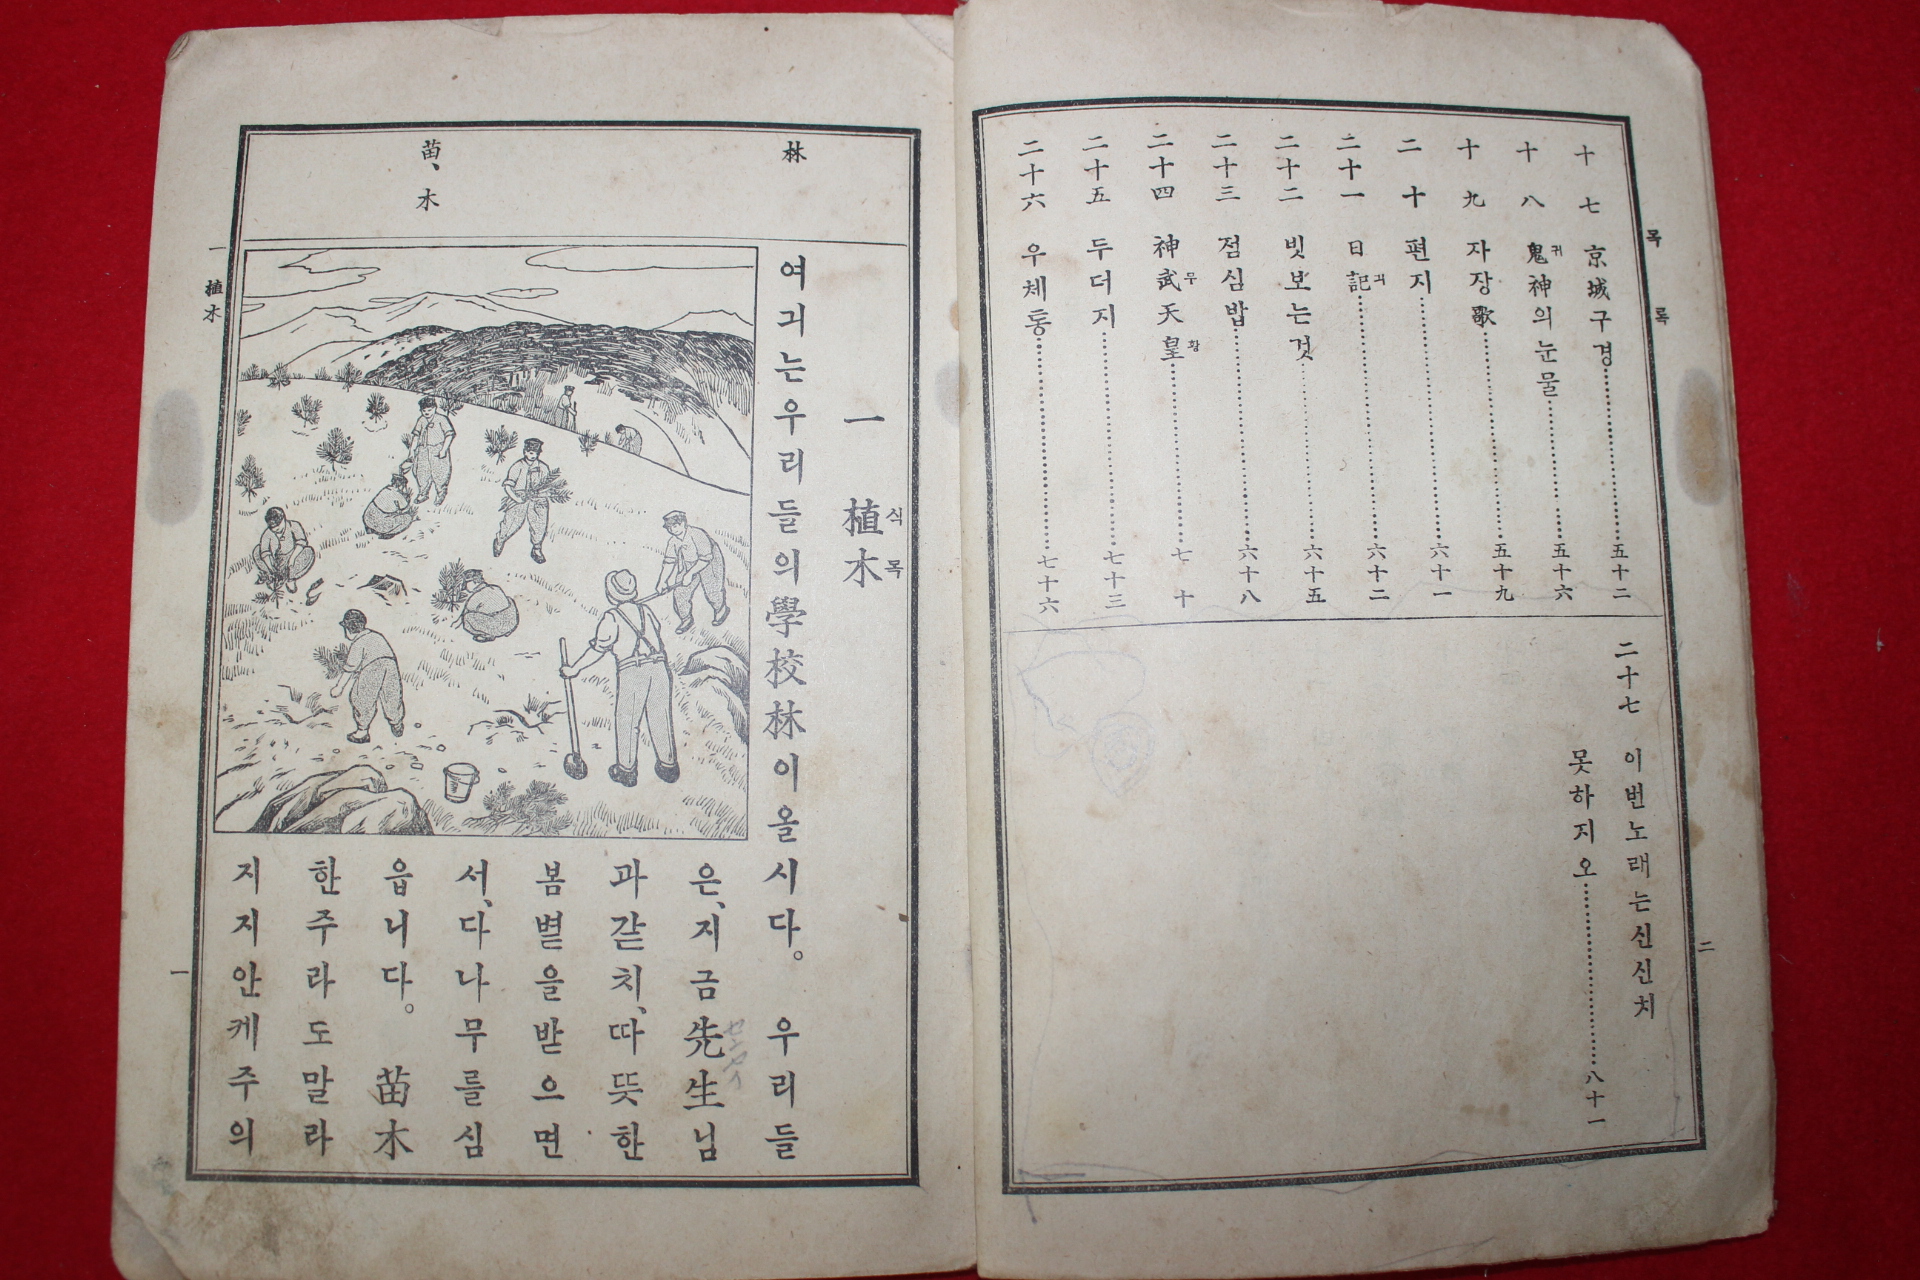 목록
十七 京城구경 五十二
十八 鬼귀神의눈물 五十六
十九 자장歌 五十九
二十 편지 六十一
二十一 日記긔 六十二
二十二 빗보는것 六十五
二十三 점심밥 六十八
二十四 神武무天皇황 七十
二十五 두더지 七十三
二十六 우체통 七十六
二十七 이번노래는신신치
못하지오 八十一
二
林
苗、木
一 植식木목
여긔는우리들의學校林이올시다。 우리들
은、지금先生님
과갇치、따뜻한
봄볕을받으면
서、다나무를심
읍니다。 苗木
한주라도말라
지지안케주의
一 植木
一